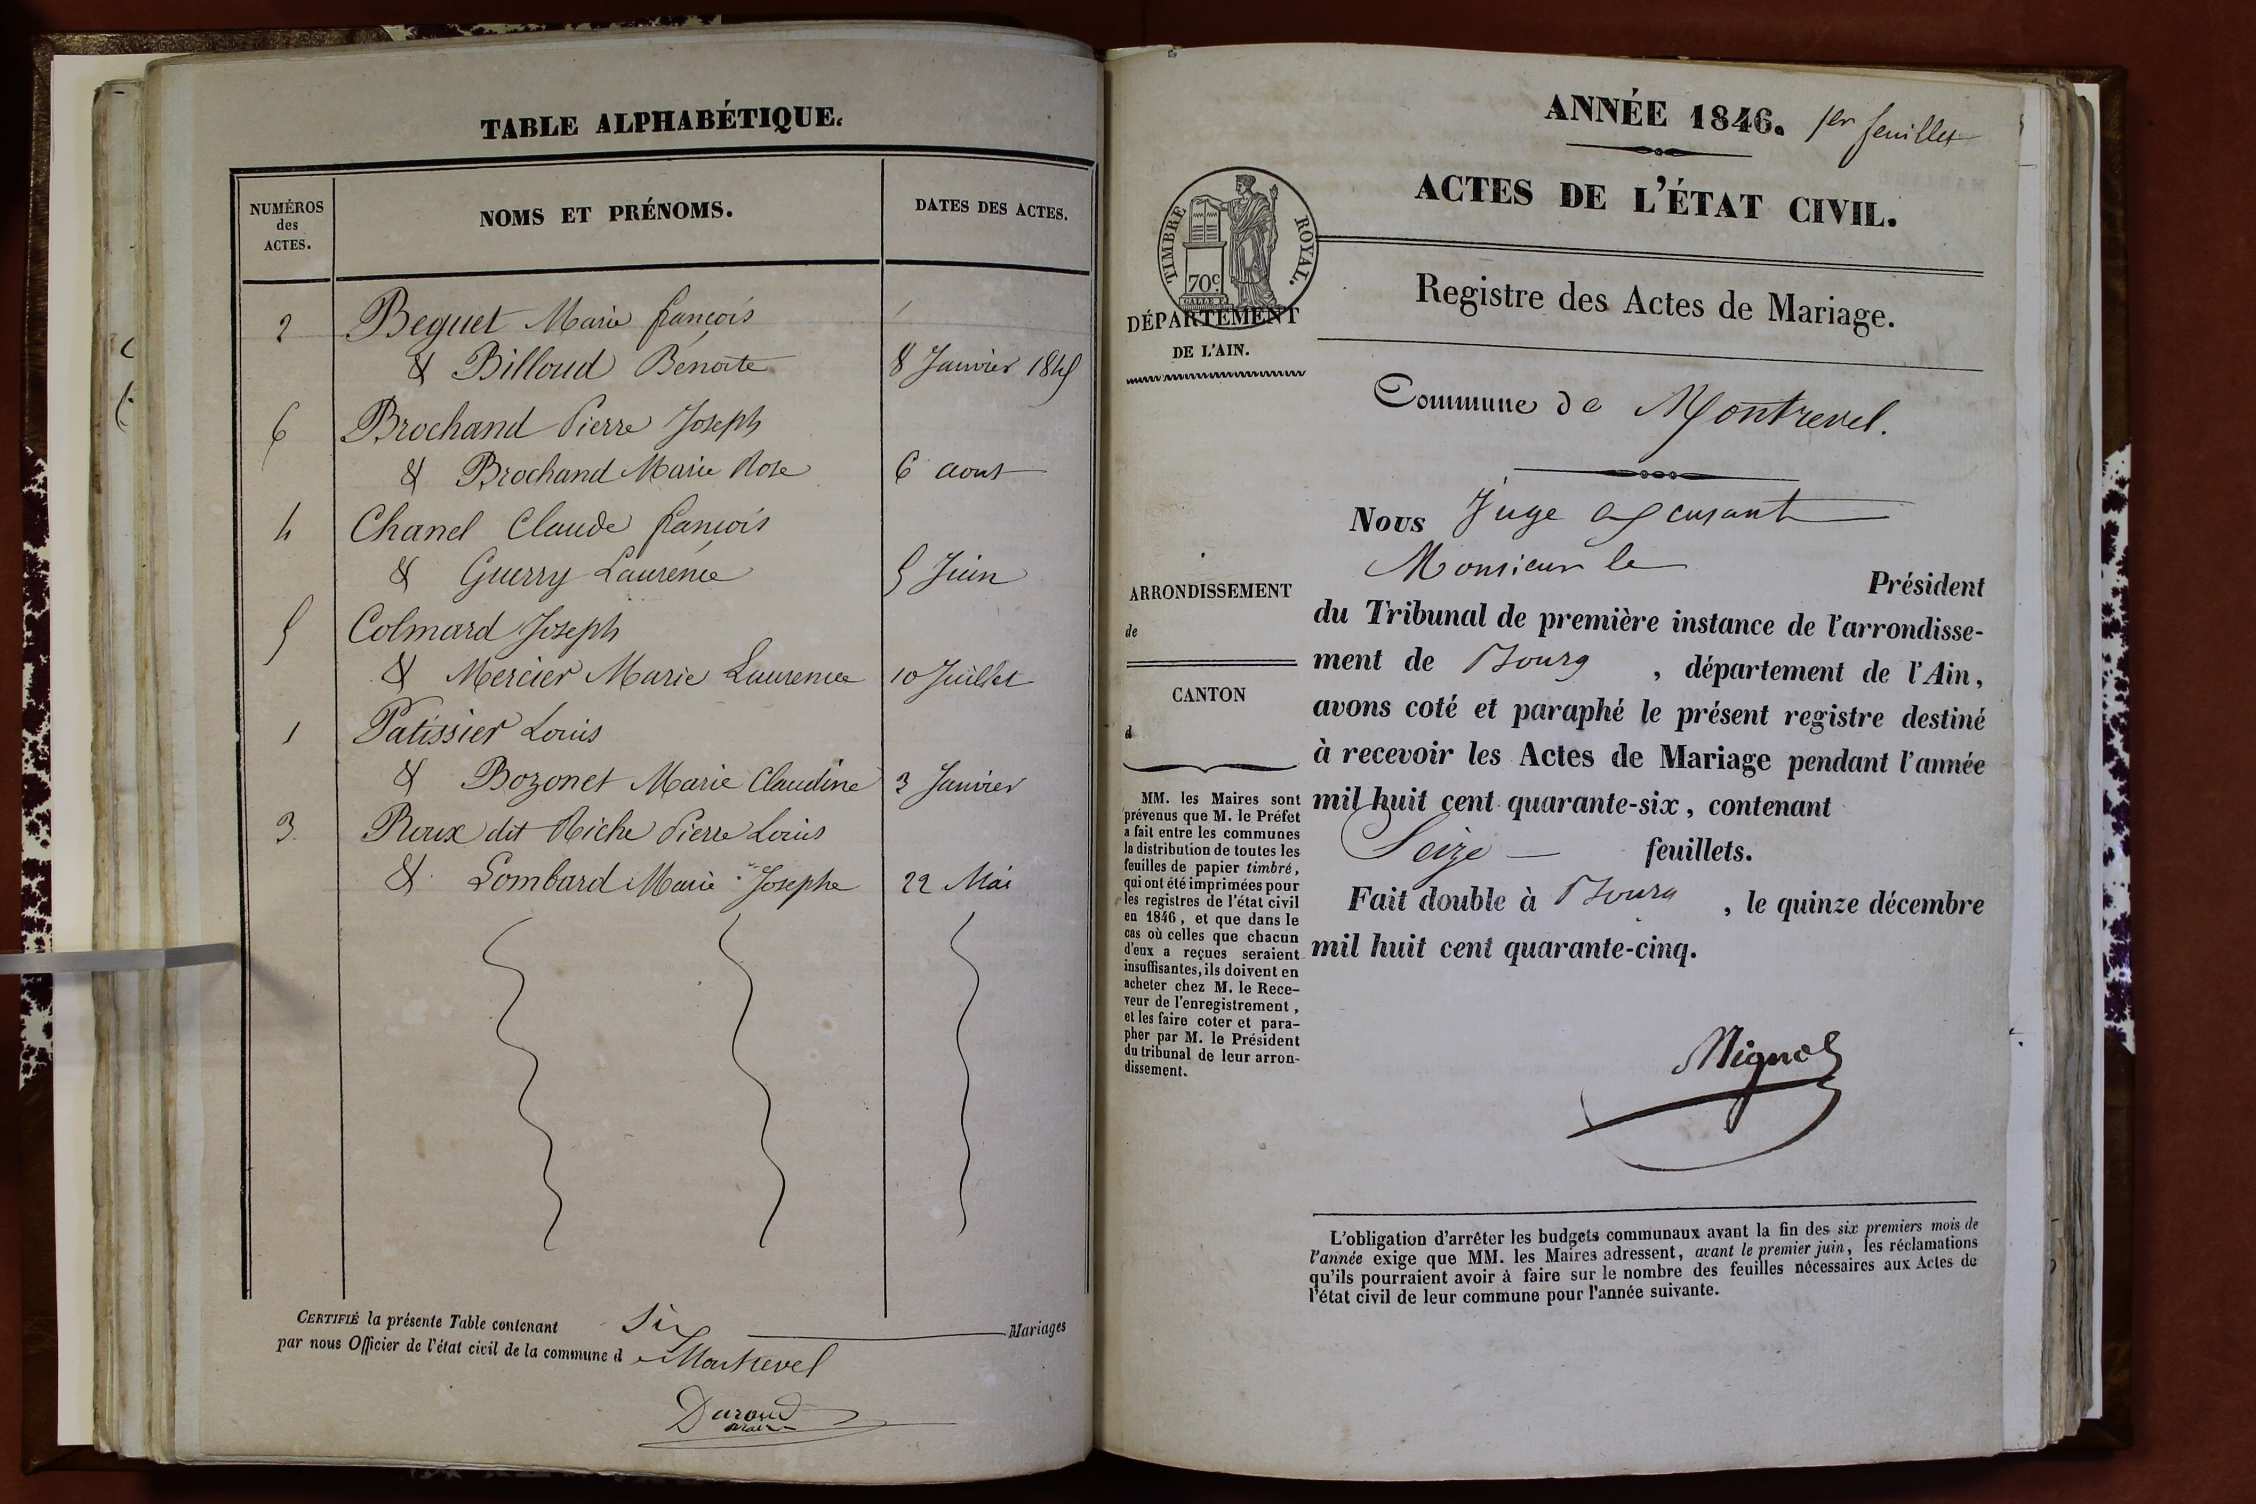 TABLE ALPHABÉTIQUE.
NUMÉROS
des
ACTES.
NOMS ET PRÉNOMS.
DATES DES ACTES.
2 Beguet Marie françois
& Billoud Benoite 8 Janvier 1845
6 Brochand Pierre Joseph
& Brochand Marie Rose 6 aout
4 Chanel Claude françois
& Guerry Laurence 5 Juin
5 Colmard Joseph
& Mercier Marie Laurence 10 Juillet
1 Patissier Louis
& Bozonet Marie Claudine 3 Janvier
3 Roux dit Riche Pierre Louis
& Lombard Marie Josephe 22 Mai
CERTIFIÉ la présente Table contenant Six Mariages
par nous Officier de l'état civil de la commune d Montrevel
Duroud
ANNÉE 1846. 1er feuillet
ACTES DE L'ÉTAT CIVIL.
TIMBRE ROYAL.
70c
DÉPARTEMENT
DE L'AIN.
Registre des Actes de Mariage.
Commune de Montrevel.
ARRONDISSEMENT
de
CANTON
d
MM. les Maires sont
prévenus que M. le Préfet
a fait entre les communes
la distribution de toutes les
feuilles de papier timbré,
qui ont été imprimées pour
les registres de l'état civil
en 1846, et que dans le
cas où celles que chacun
d'eux a reçues seraient
insuffisantes, ils doivent en
acheter chez M. le Rece-
veur de l'enregistrement,
et les faire coter et para-
pher par M. le Président
du tribunal de leur arron-
dissement.
Nous Juge
Monsieur le
Président
du Tribunal de première instance de l'arrondisse-
ment de Bourg, département de l'Ain,
avons coté et paraphé le présent registre destiné
à recevoir les Actes de Mariage pendant l'année
mil huit cent quarante-six, contenant
Seize feuillets.
Fait double à Bourg, le quinze décembre
mil huit cent quarante-cinq.
L'obligation d'arrêter les budgets communaux avant la fin des six premiers mois de
l'année exige que MM. les Maires adressent, avant le premier juin, les réclamations
qu'ils pourraient avoir à faire sur le nombre des feuilles nécessaires aux Actes de
l'état civil de leur commune pour l'année suivante.